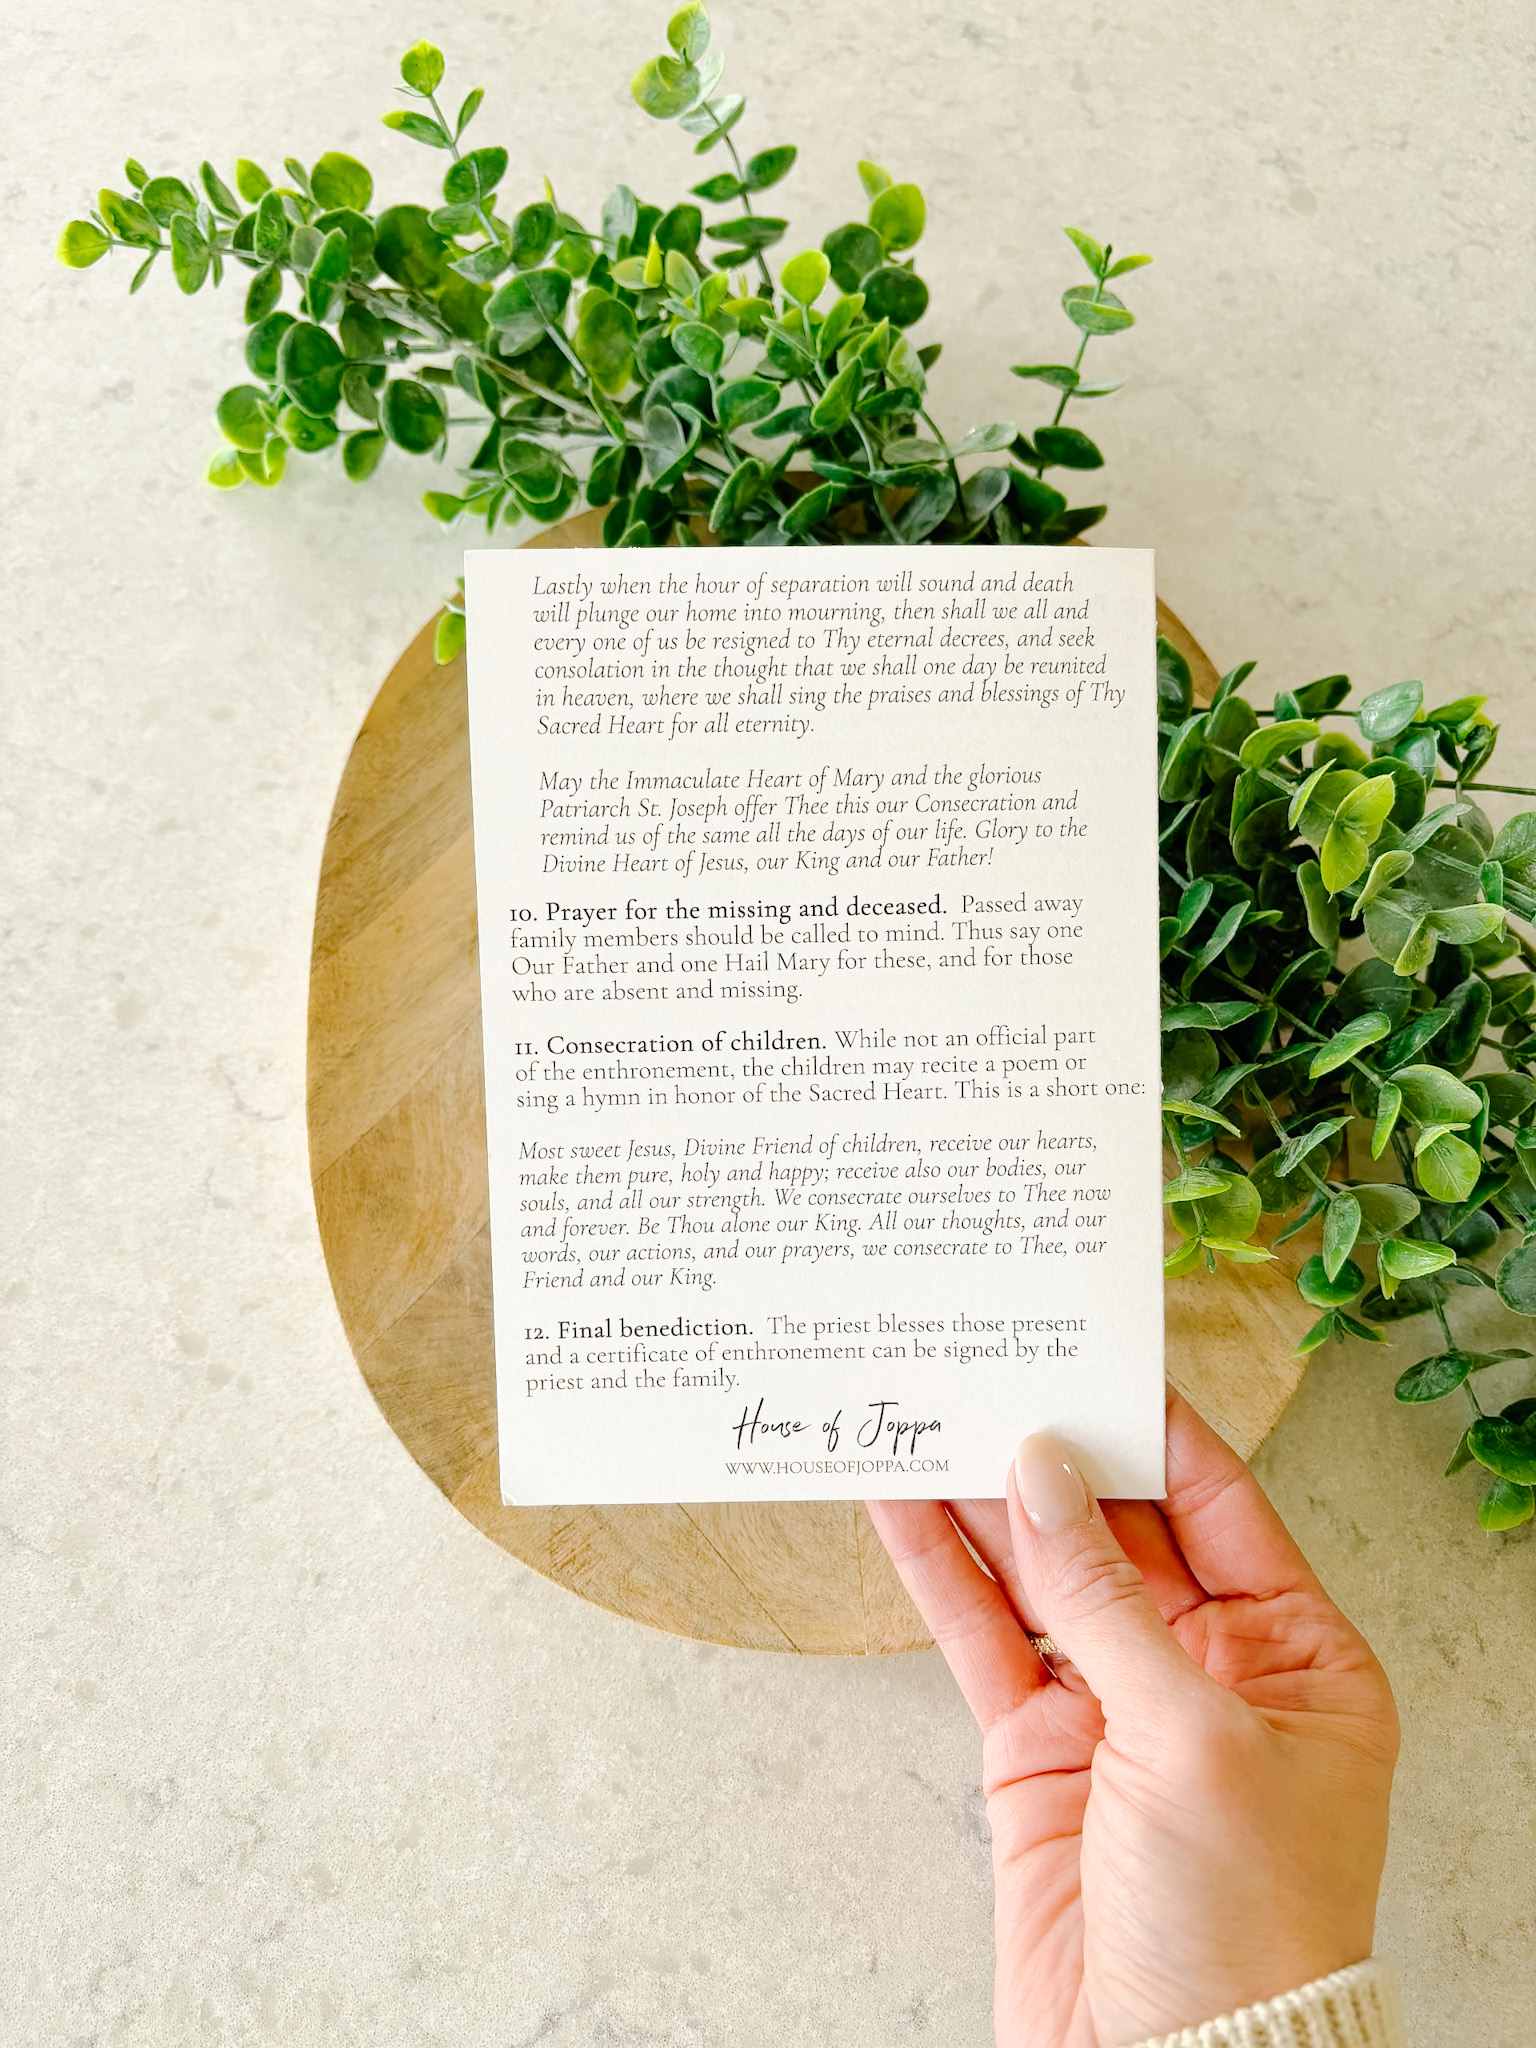 Lastly when the hour of separation will sound and death
will plunge our home into mourning, then shall we all and
every one of us be resigned to Thy eternal decrees, and seek
consolation in the thought that we shall one day be reunited
in heaven, where we shall sing the praises and blessings of Thy
Sacred Heart for all eternity.
May the Immaculate Heart of Mary and the glorious
Patriarch St. Joseph offer Thee this our Consecration and
remind us of the same all the days of our life. Glory to the
Divine Heart of Jesus, our King and our Father!
10. Prayer for the missing and deceased. Passed away
family members should be called to mind. Thus say one
Our Father and one Hail Mary for these, and for those
who are absent and missing.
11. Consecration of children. While not an official part
of the enthronement, the children may recite a poem or
sing a hymn in honor of the Sacred Heart. This is a short one:
Most sweet Jesus, Divine Friend of children, receive our hearts,
make them pure, holy and happy; receive also our bodies, our
souls, and all our strength. We consecrate ourselves to Thee now
and forever. Be Thou alone our King. All our thoughts, and our
words, our actions, and our prayers, we consecrate to Thee, our
Friend and our King.
12. Final benediction. The priest blesses those present
and a certificate of enthronement can be signed by the
priest and the family.
House of Joppa
WWW.HOUSEOFJOPPA.COM